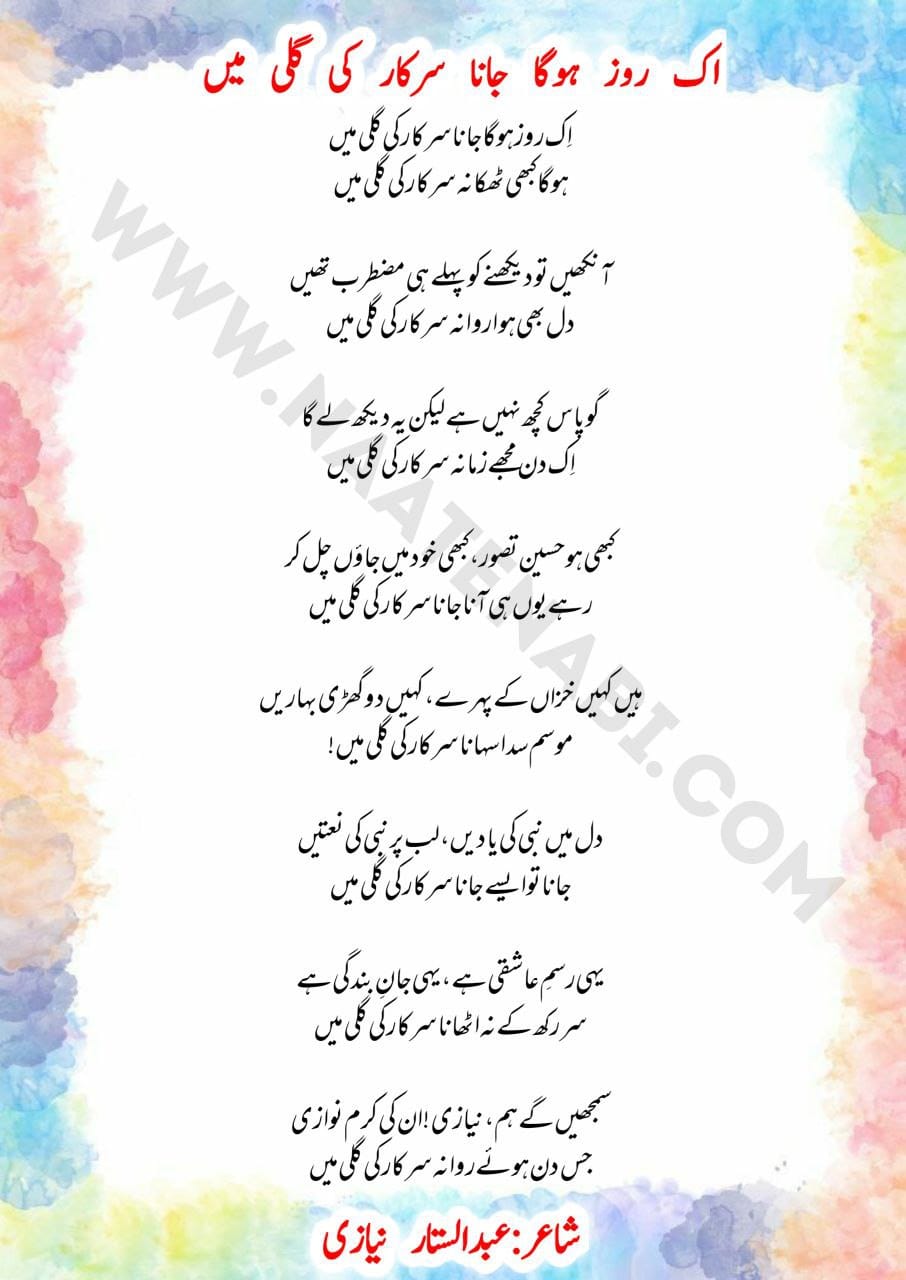 اک روز ہوگا جانا سرکار کی گلی میں
اِک روز ہوگا جانا سرکار کی گلی میں
ہوگا کبھی ٹھکانہ سرکار کی گلی میں
آنکھیں تو دیکھنے کو پہلے ہی مضطرب تھیں
دل بھی ہوا روانہ سرکار کی گلی میں
گو پاس کچھ نہیں ہے لیکن یہ دیکھ لے گا
اِک دن مجھے زمانہ سرکار کی گلی میں
کبھی ہو حسین تصور، کبھی خود میں جاؤں چل کر
رہے یوں ہی آنا جانا سرکار کی گلی میں
ہیں کہیں خزاں کے پہرے، کہیں دو گھڑی بہاریں
موسم سدا سہانا سرکار کی گلی میں!
دل میں نبی کی یادیں، لب پر نبی کی نعتیں
جانا تو ایسے جانا سرکار کی گلی میں
یہی رسمِ عاشقی ہے، یہی جانِ بندگی ہے
سر رکھ کے نہ اٹھانا سرکار کی گلی میں
سمجھیں گے ہم، نیازی! ان کی کرم نوازی
جس دن ہوئے روانہ سرکار کی گلی میں
شاعر: عبدالستار نیازی
WWW.NAATENABI.COM